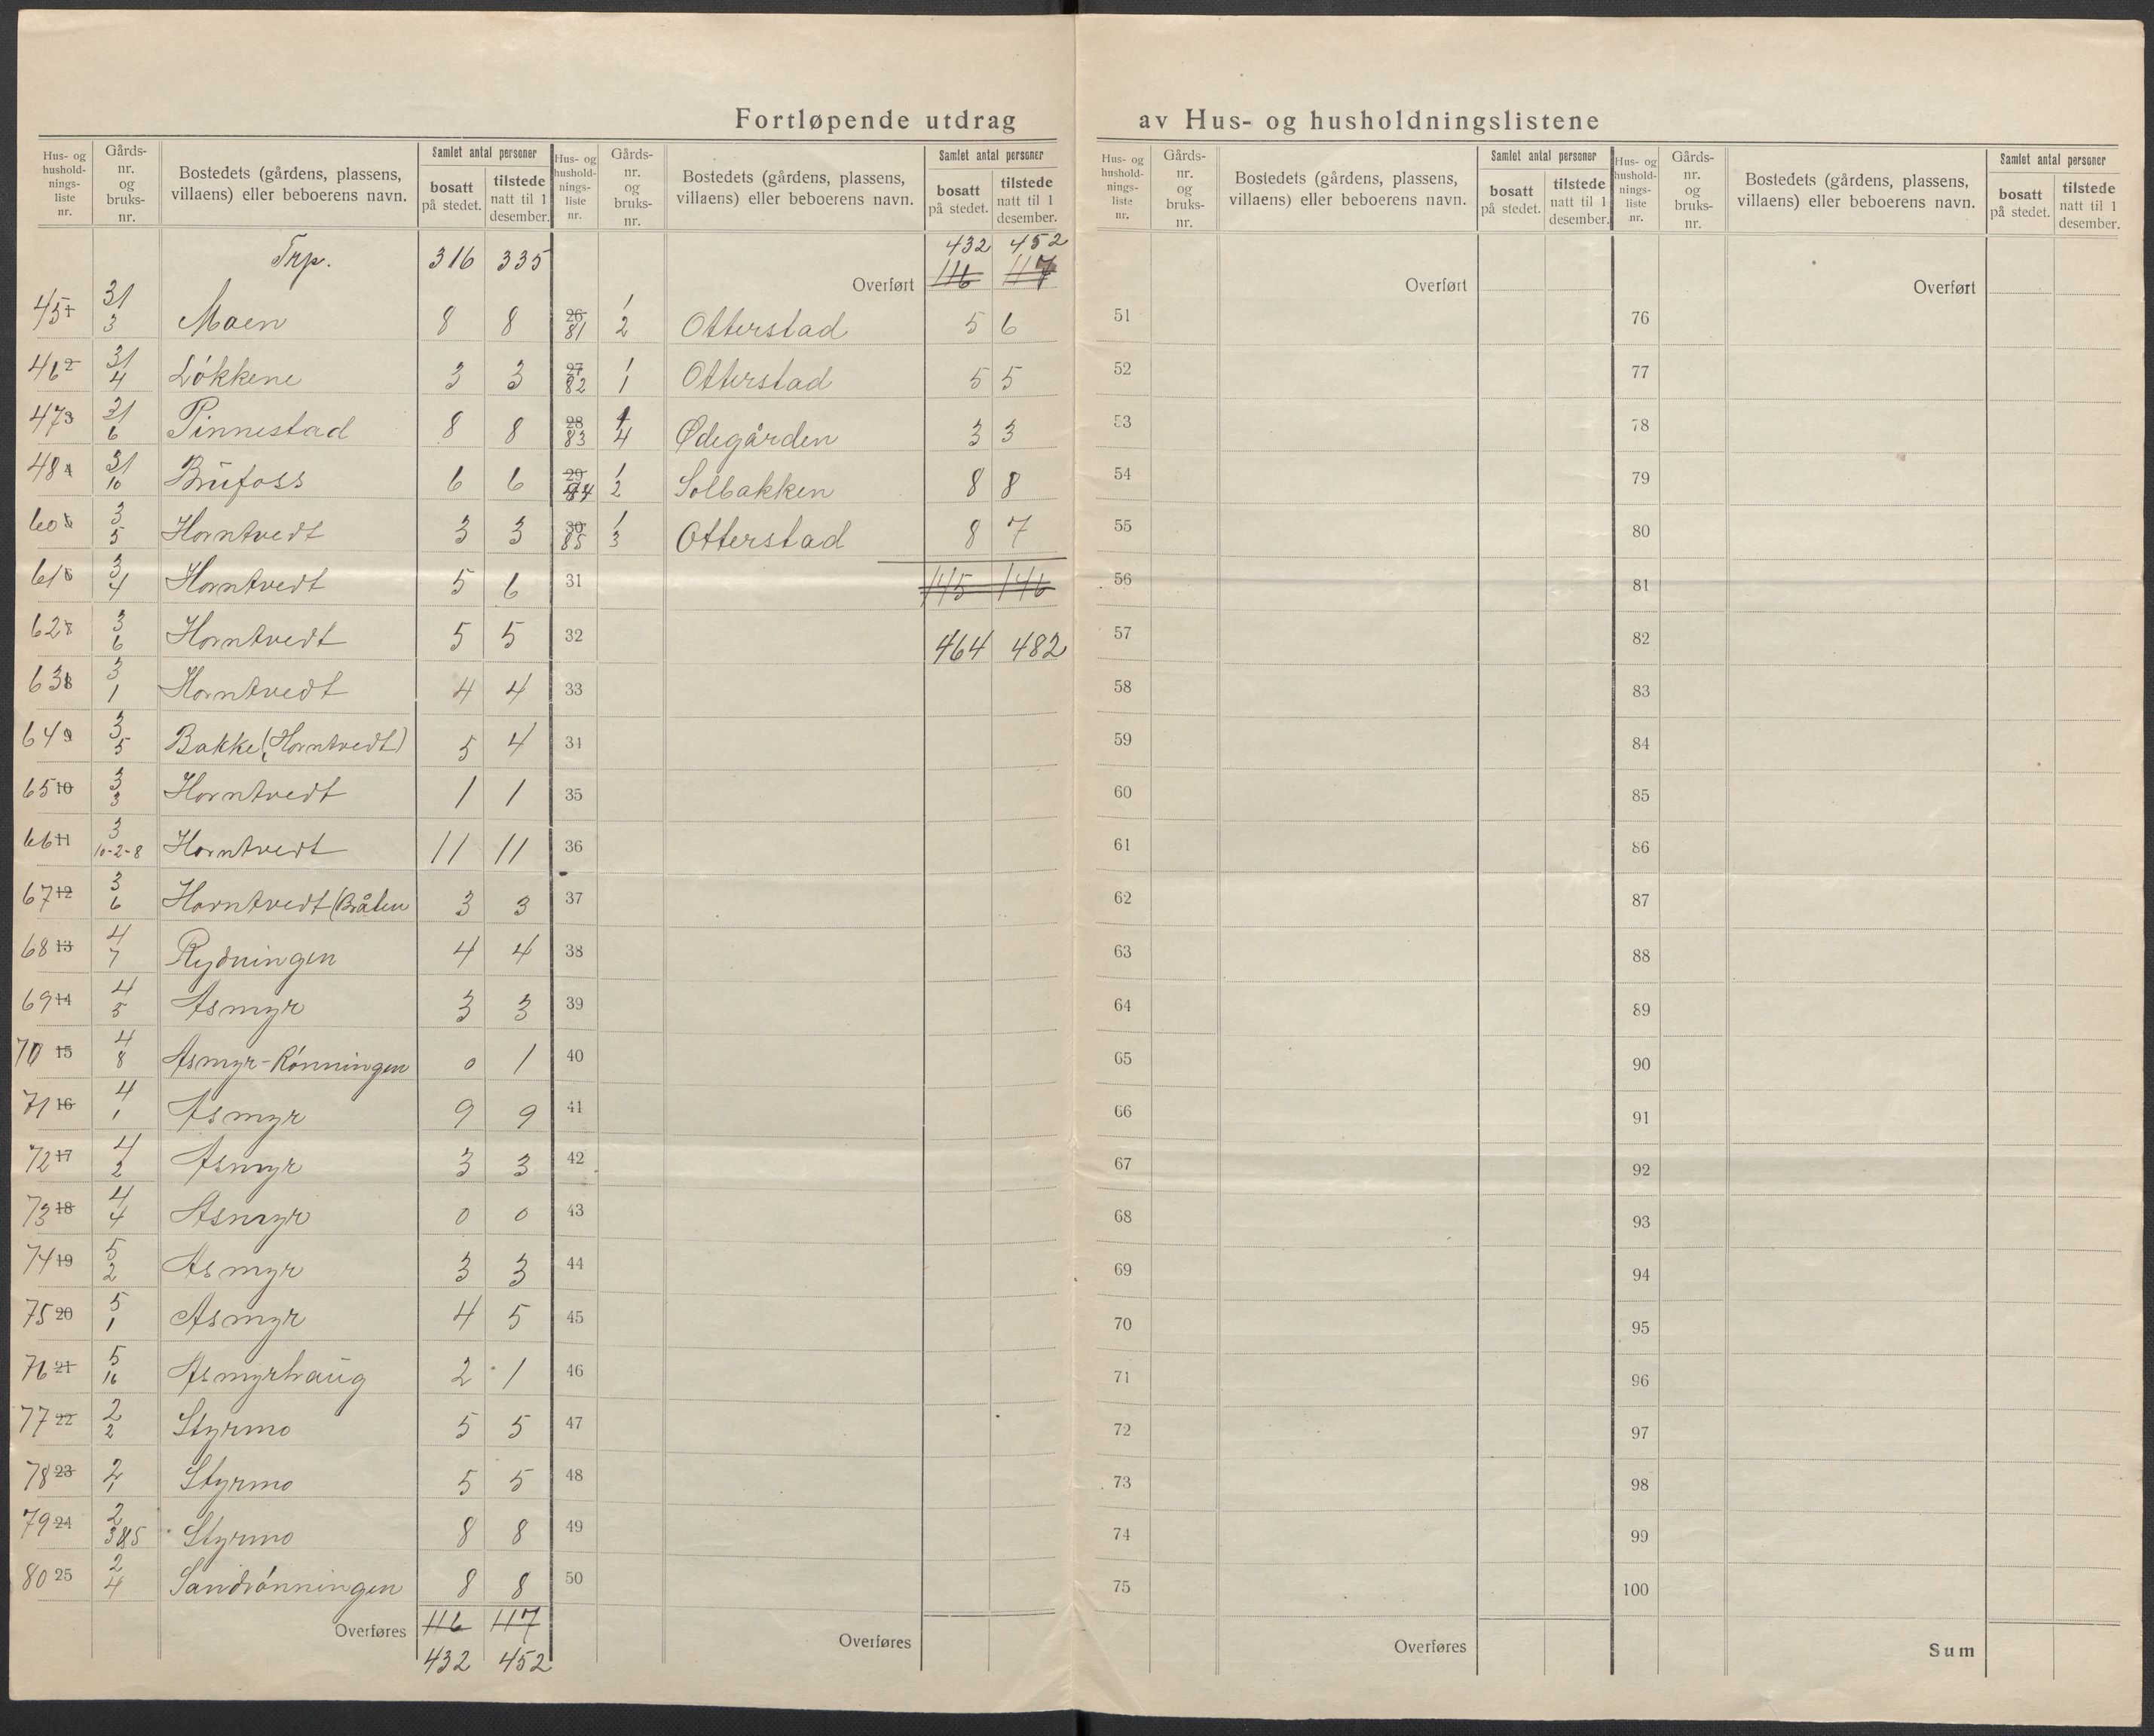 Fortløpende utdrag av Hus- og husholdningslistene
Hus- og husholdnings-liste nr. | Gårds-nr. og bruks-nr. | Bostedets (gårdens, plassens, villaens) eller beboerens navn. | Samlet antal personer | bosatt på stedet. | tilstede natt til 1 desember.
Trp. 316 335
45 1 31 3 Moen 8 8
46 2 31 4 Løkkene 3 3
47 3 31 6 Pinnestad 8 8
48 4 31 10 Brufoss 6 6
60 5 3 5 Horntvedt 3 3
61 6 3 4 Horntvedt 5 6
62 7 3 6 Horntvedt 5 5
63 8 3 1 Horntvedt 4 4
64 9 3 5 Bakke (Horntvedt) 5 4
65 10 3 3 Horntvedt 1 1
66 11 3 10-2-8 Horntvedt 11 11
67 12 3 6 Horntvedt (Bråten 3 3
68 13 4 7 Rydningen 4 4
69 14 4 5 Asmyr 3 3
70 15 4 8 Asmyr-Rønningen 0 1
71 16 4 1 Asmyr 9 9
72 17 4 2 Asmyr 3 3
73 18 4 4 Asmyr 0 0
74 19 5 2 Asmyr 3 3
75 20 5 1 Asmyr 4 5
76 21 5 16 Asmyrhaug 2 1
77 22 2 2 Styrmo 5 5
78 23 2 1 Styrmo 5 5
79 24 2 3&5 Styrmo 8 8
80 25 2 4 Sandrønningen 8 8
Overføres 116 117
432 452
Hus- og husholdnings-liste nr. | Gårds-nr. og bruks-nr. | Bostedets (gårdens, plassens, villaens) eller beboerens navn. | Samlet antal personer | bosatt på stedet. | tilstede natt til 1 desember.
432 452
Overført 116 117
26 81 1 2 Otterstad 5 6
27 82 1 1 Otterstad 5 5
28 83 1 4 Ødegården 3 3
29 84 1 2 Solbakken 8 8
30 85 1 3 Otterstad 8 7
31 145 146
32 464 482
33
34
35
36
37
38
39
40
41
42
43
44
45
46
47
48
49
50
Overføres
Hus- og husholdnings-liste nr. | Gårds-nr. og bruks-nr. | Bostedets (gårdens, plassens, villaens) eller beboerens navn. | Samlet antal personer | bosatt på stedet. | tilstede natt til 1 desember.
Overført
51
52
53
54
55
56
57
58
59
60
61
62
63
64
65
66
67
68
69
70
71
72
73
74
75
Overføres
Hus- og husholdnings-liste nr. | Gårds-nr. og bruks-nr. | Bostedets (gårdens, plassens, villaens) eller beboerens navn. | Samlet antal personer | bosatt på stedet. | tilstede natt til 1 desember.
Overført
76
77
78
79
80
81
82
83
84
85
86
87
88
89
90
91
92
93
94
95
96
97
98
99
100
Sum